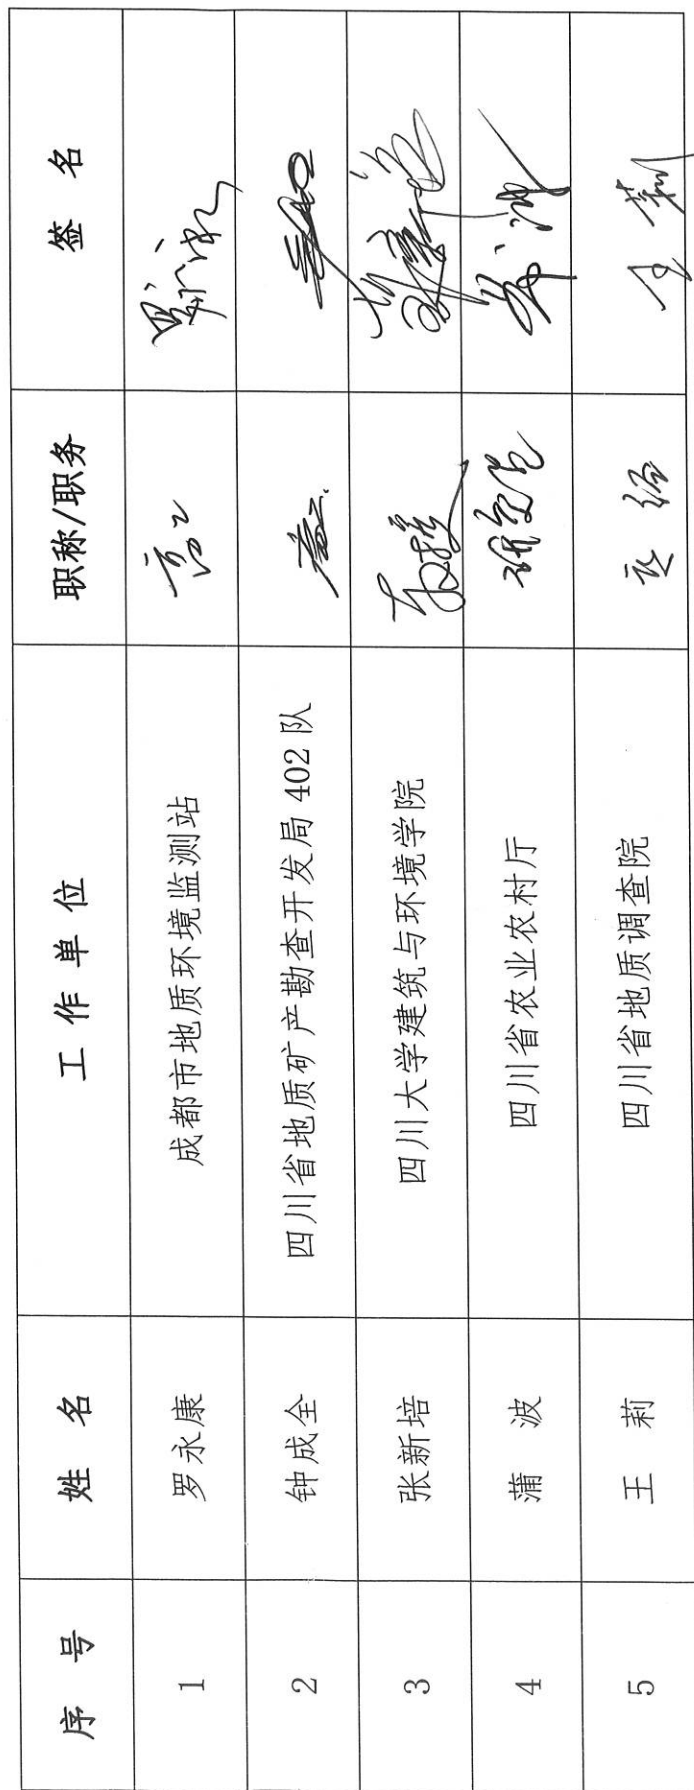 序 号 姓 名 工 作 单 位 职称/职务 签 名
1 罗永康 成都市地质环境监测站 高工
2 钟成全 四川省地质矿产勘查开发局 402 队 高工
3 张新培 四川大学建筑与环境学院 教授
4 蒲 波 四川省农业农村厅 研究员
5 王 莉 四川省地质调查院 王 莉